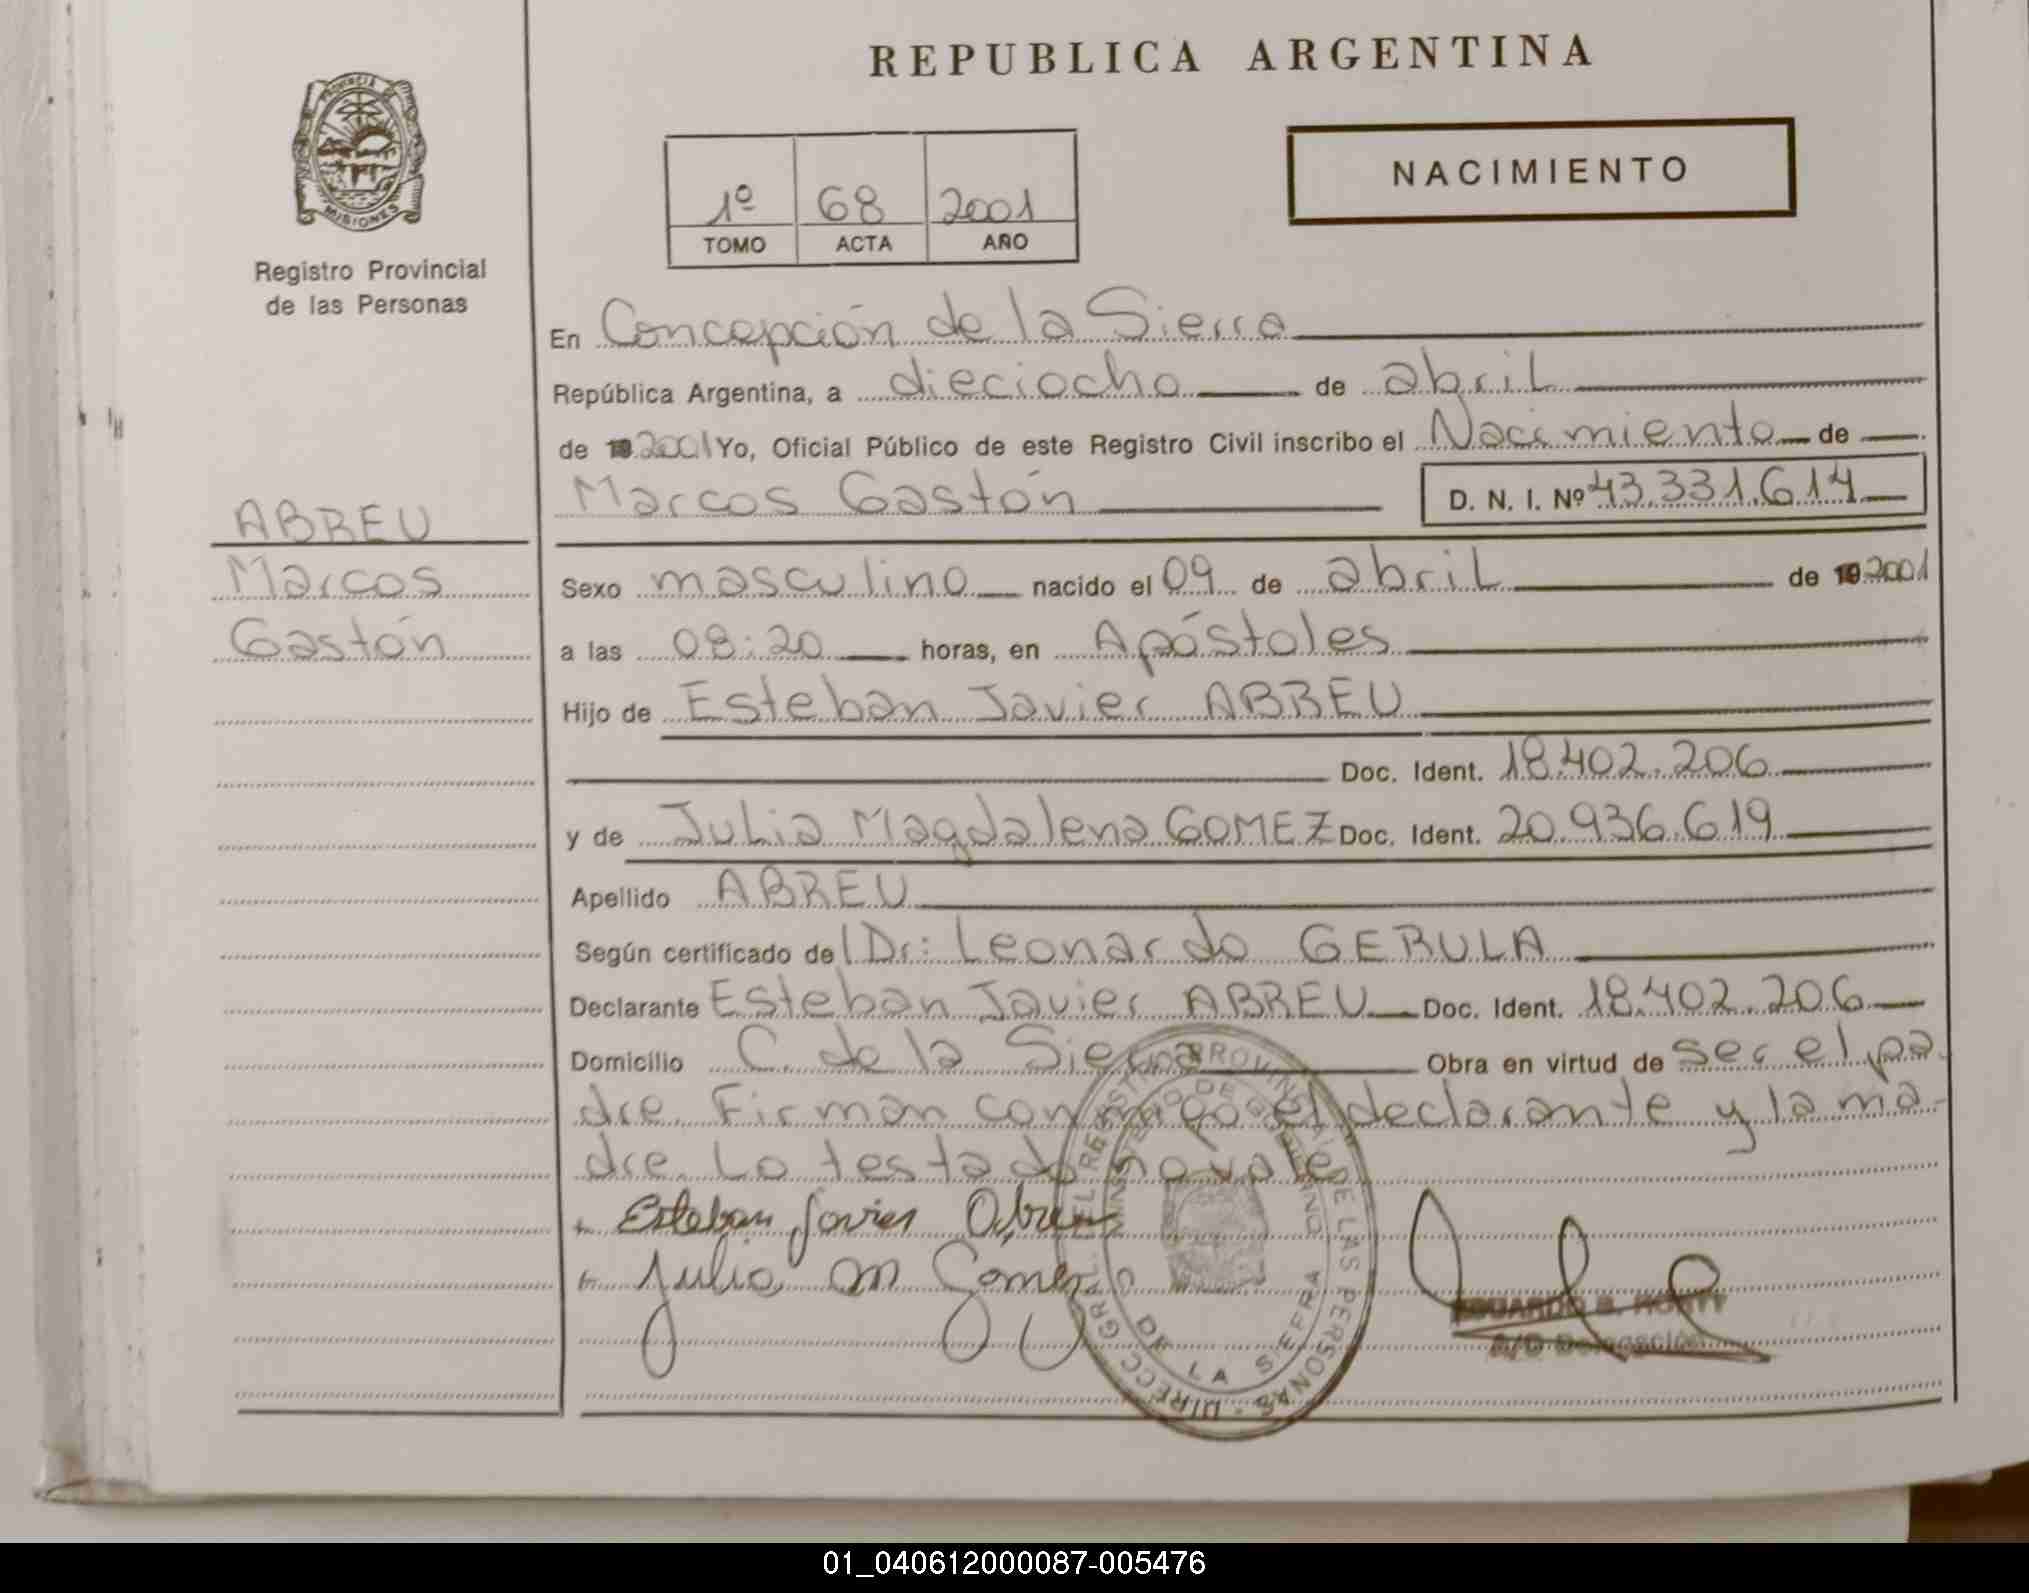 REPUBLICA ARGENTINA
PROVINCIA DE
MISIONES
Registro Provincial
de las Personas
NACIMIENTO
1º 68 2001
TOMO ACTA AÑO
En Concepción de la Sierra
República Argentina, a dieciocho de abril
de 19 2001 Yo, Oficial Público de este Registro Civil inscribo el Nacimiento de
Marcos Gastón D. N. I. Nº 43.331.614
ABREU
Marcos
Gastón
Sexo masculino nacido el 09 de abril de 19 2001
a las 08:20 horas, en Apóstoles
Hijo de Esteban Javier ABREU
Doc. Ident. 18.402.206
y de Julia Magdalena GOMEZ Doc. Ident. 20.936.619
Apellido ABREU
Según certificado de l Dr: Leonardo GERULA
Declarante Esteban Javier ABREU Doc. Ident. 18.402.206
Domicilio C. de la Sierra Obra en virtud de ser el pa-
dre. Firman conmigo el declarante y la ma-
dre. Lo testado no vale.
Esteban Javier Abreu
Julia M Gomez
DIRECC. GRAL. DEL REGISTRO PROVINCIAL DE LAS PERSONAS
MINISTERIO DE GOBIERNO
C. DE LA SIERRA
EDUARDO
A/C Delegación
01_040612000087-005476